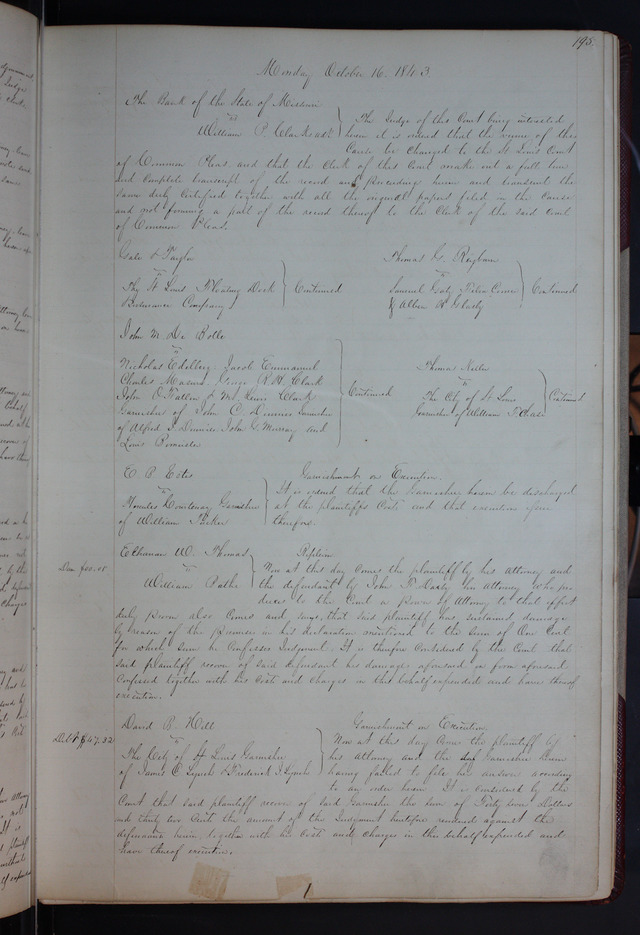 195.
Monday October 16. 1843.
The Bank of the State of Missouri
vs
William P. Clark &als
The Judge of this Court being interested
herein it is ordered that the venue of this
Cause be changed to the St Louis Court
of Common Pleas and that the Clerk of this Court make out a full true
and complete transcript of the record and proceedings herein and transmit the
same duly certified together with all the original papers filed in the Cause
and not forming a part of the record thereof to the Clerk of the said Court
of Common Pleas.
Gale & Taylor
vs
The St Louis Floating Dock
Insurance Company
Continued
Thomas G.
vs
Samuel Gaty
& Alban H. Glasby
Continued
John M. De Bolle
vs
Nicholas Edelberg Jacob Emmanuel
Charles George R H. Clark
John O'Fallon M. Lewis Clark
Garnishee of John C. Dinnies Garnishee
of Alfred J. Dinnies John G. Murray and
Louis
Continued
Thomas
vs
The City of St Louis
Garnishee of William T. Chase
Continued
E. B. Estes
vs
Hercules Dousterway Garnishee
of William
Garnishment on Execution.
It is ordered that the Garnishee herein be discharged
at the plaintiffs Costs and that execution issue
therefor.
W. Thomas
vs
William
Petition
Dam $00.01
Now at this day comes the plaintiff by his Attorney and
the defendant by John his Attorney who pro-
duces to the Court a Power of Attorney to that effect
duly proven also comes and says that said plaintiff has sustained damage
by reason of the premises in his declaration mentioned to the sum of One Cent
for which sum he Confesses Judgment. It is therefore Considered by the Court that
said plaintiff recover of said defendant his damages aforesaid in form aforesaid
Confessed together with his Costs and charges in this behalf expended and have thereof
execution.
David B. Hill
vs
The City of St Louis Garnishee
of James C. Lynch & Frederick J. Lynch
Garnishment on Execution
Debt $47.32
Now at this day comes the plaintiff by
his attorney and the Garnishee herein
having failed to file his answer according
to any order herein It is considered by the
Court that said plaintiff recover of said Garnishee the sum of Forty seven Dollars
and thirty two Cents the amount of the Judgment heretofore rendered against the
defendants herein together with his Costs and charges in this behalf expended and
have thereof execution.